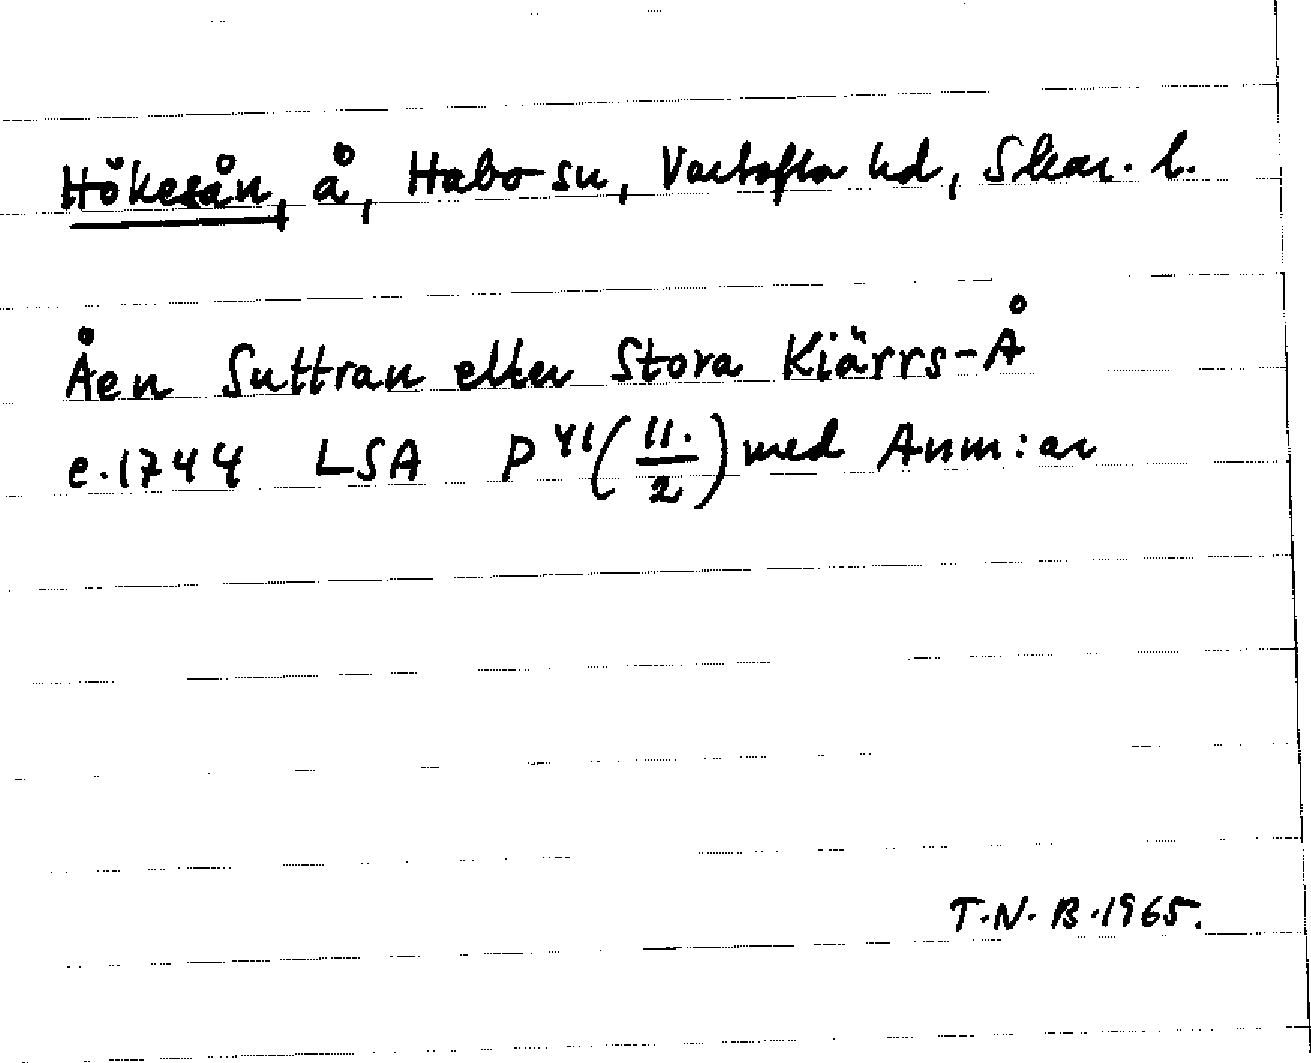 Hökesån, å, Habo sn, Vartofta hd, Skar. l.
Åen Suttran eller Stora Kiärrs-Å
e. 1744 LSA P 41 (11./2) med Anm:ar
T.N.B. 1965.